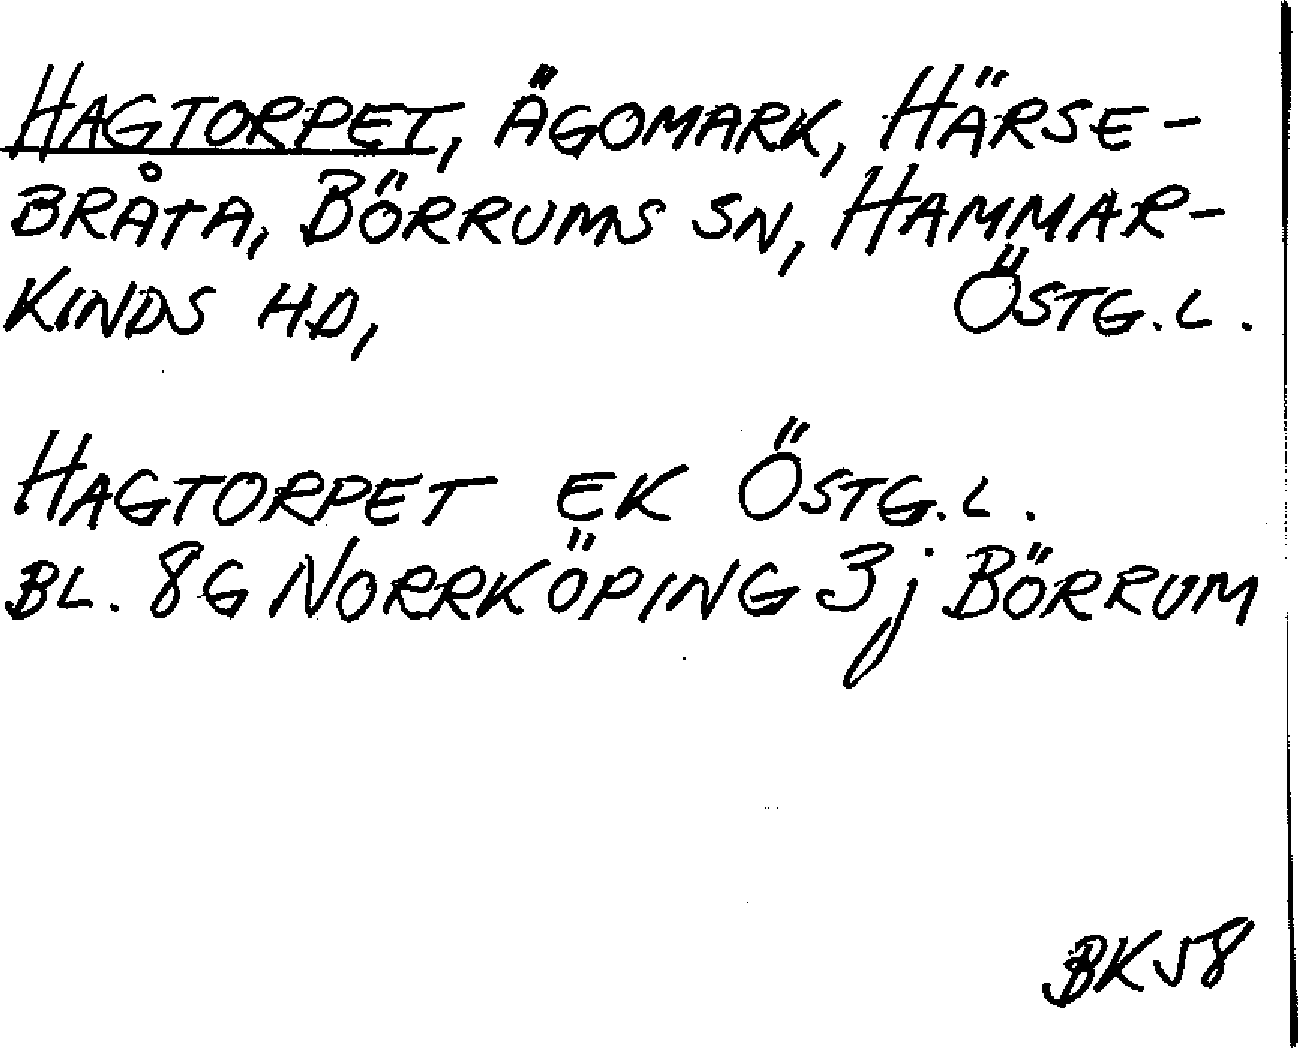 HAGTORPET, ÄGOMARK, HÄRSE-
BRÅTA, BÖRRUMS SN, HAMMAR-
KINDS HD, ÖSTG.L.
HAGTORPET EK ÖSTG.L.
BL. 8G NORRKÖPING 3j BÖRRUM
BK58